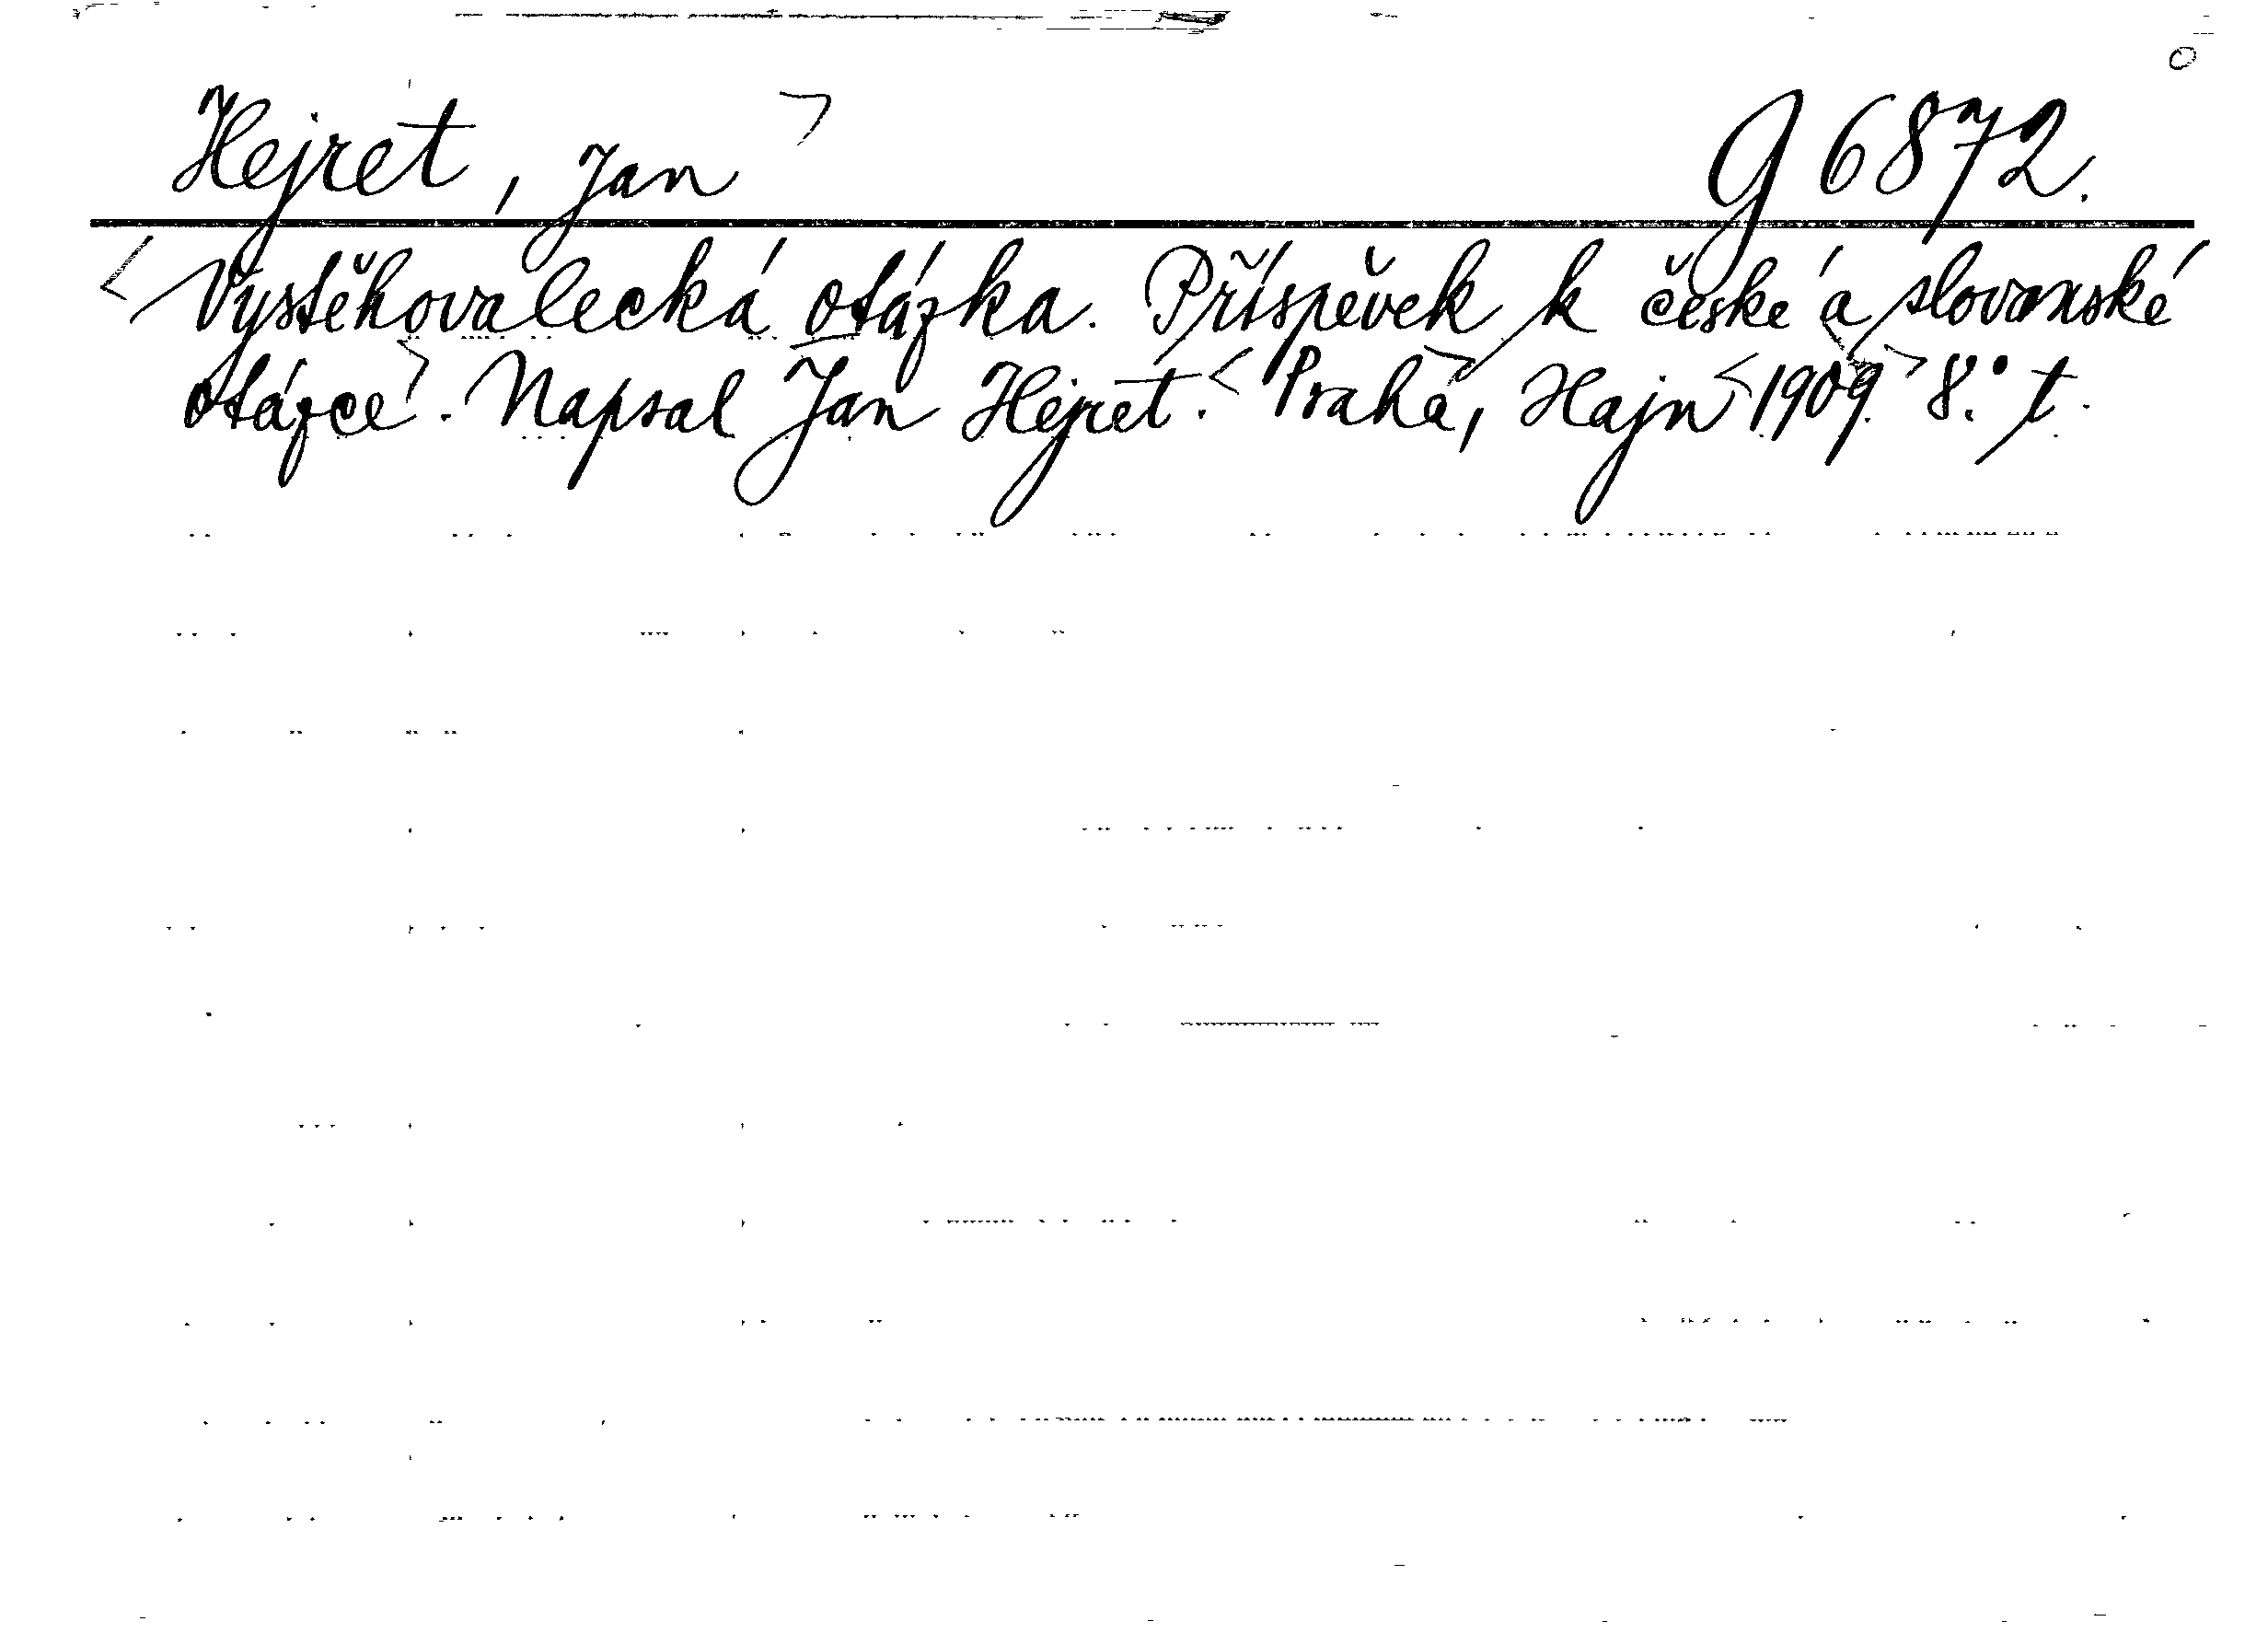 Hejret, Jan G 6872.
Vystěhovalecká otázka. Příspěvek k české a slovanské
otázce. Napsal Jan Hejret. Praha, Hajn 1909. 8.° t.